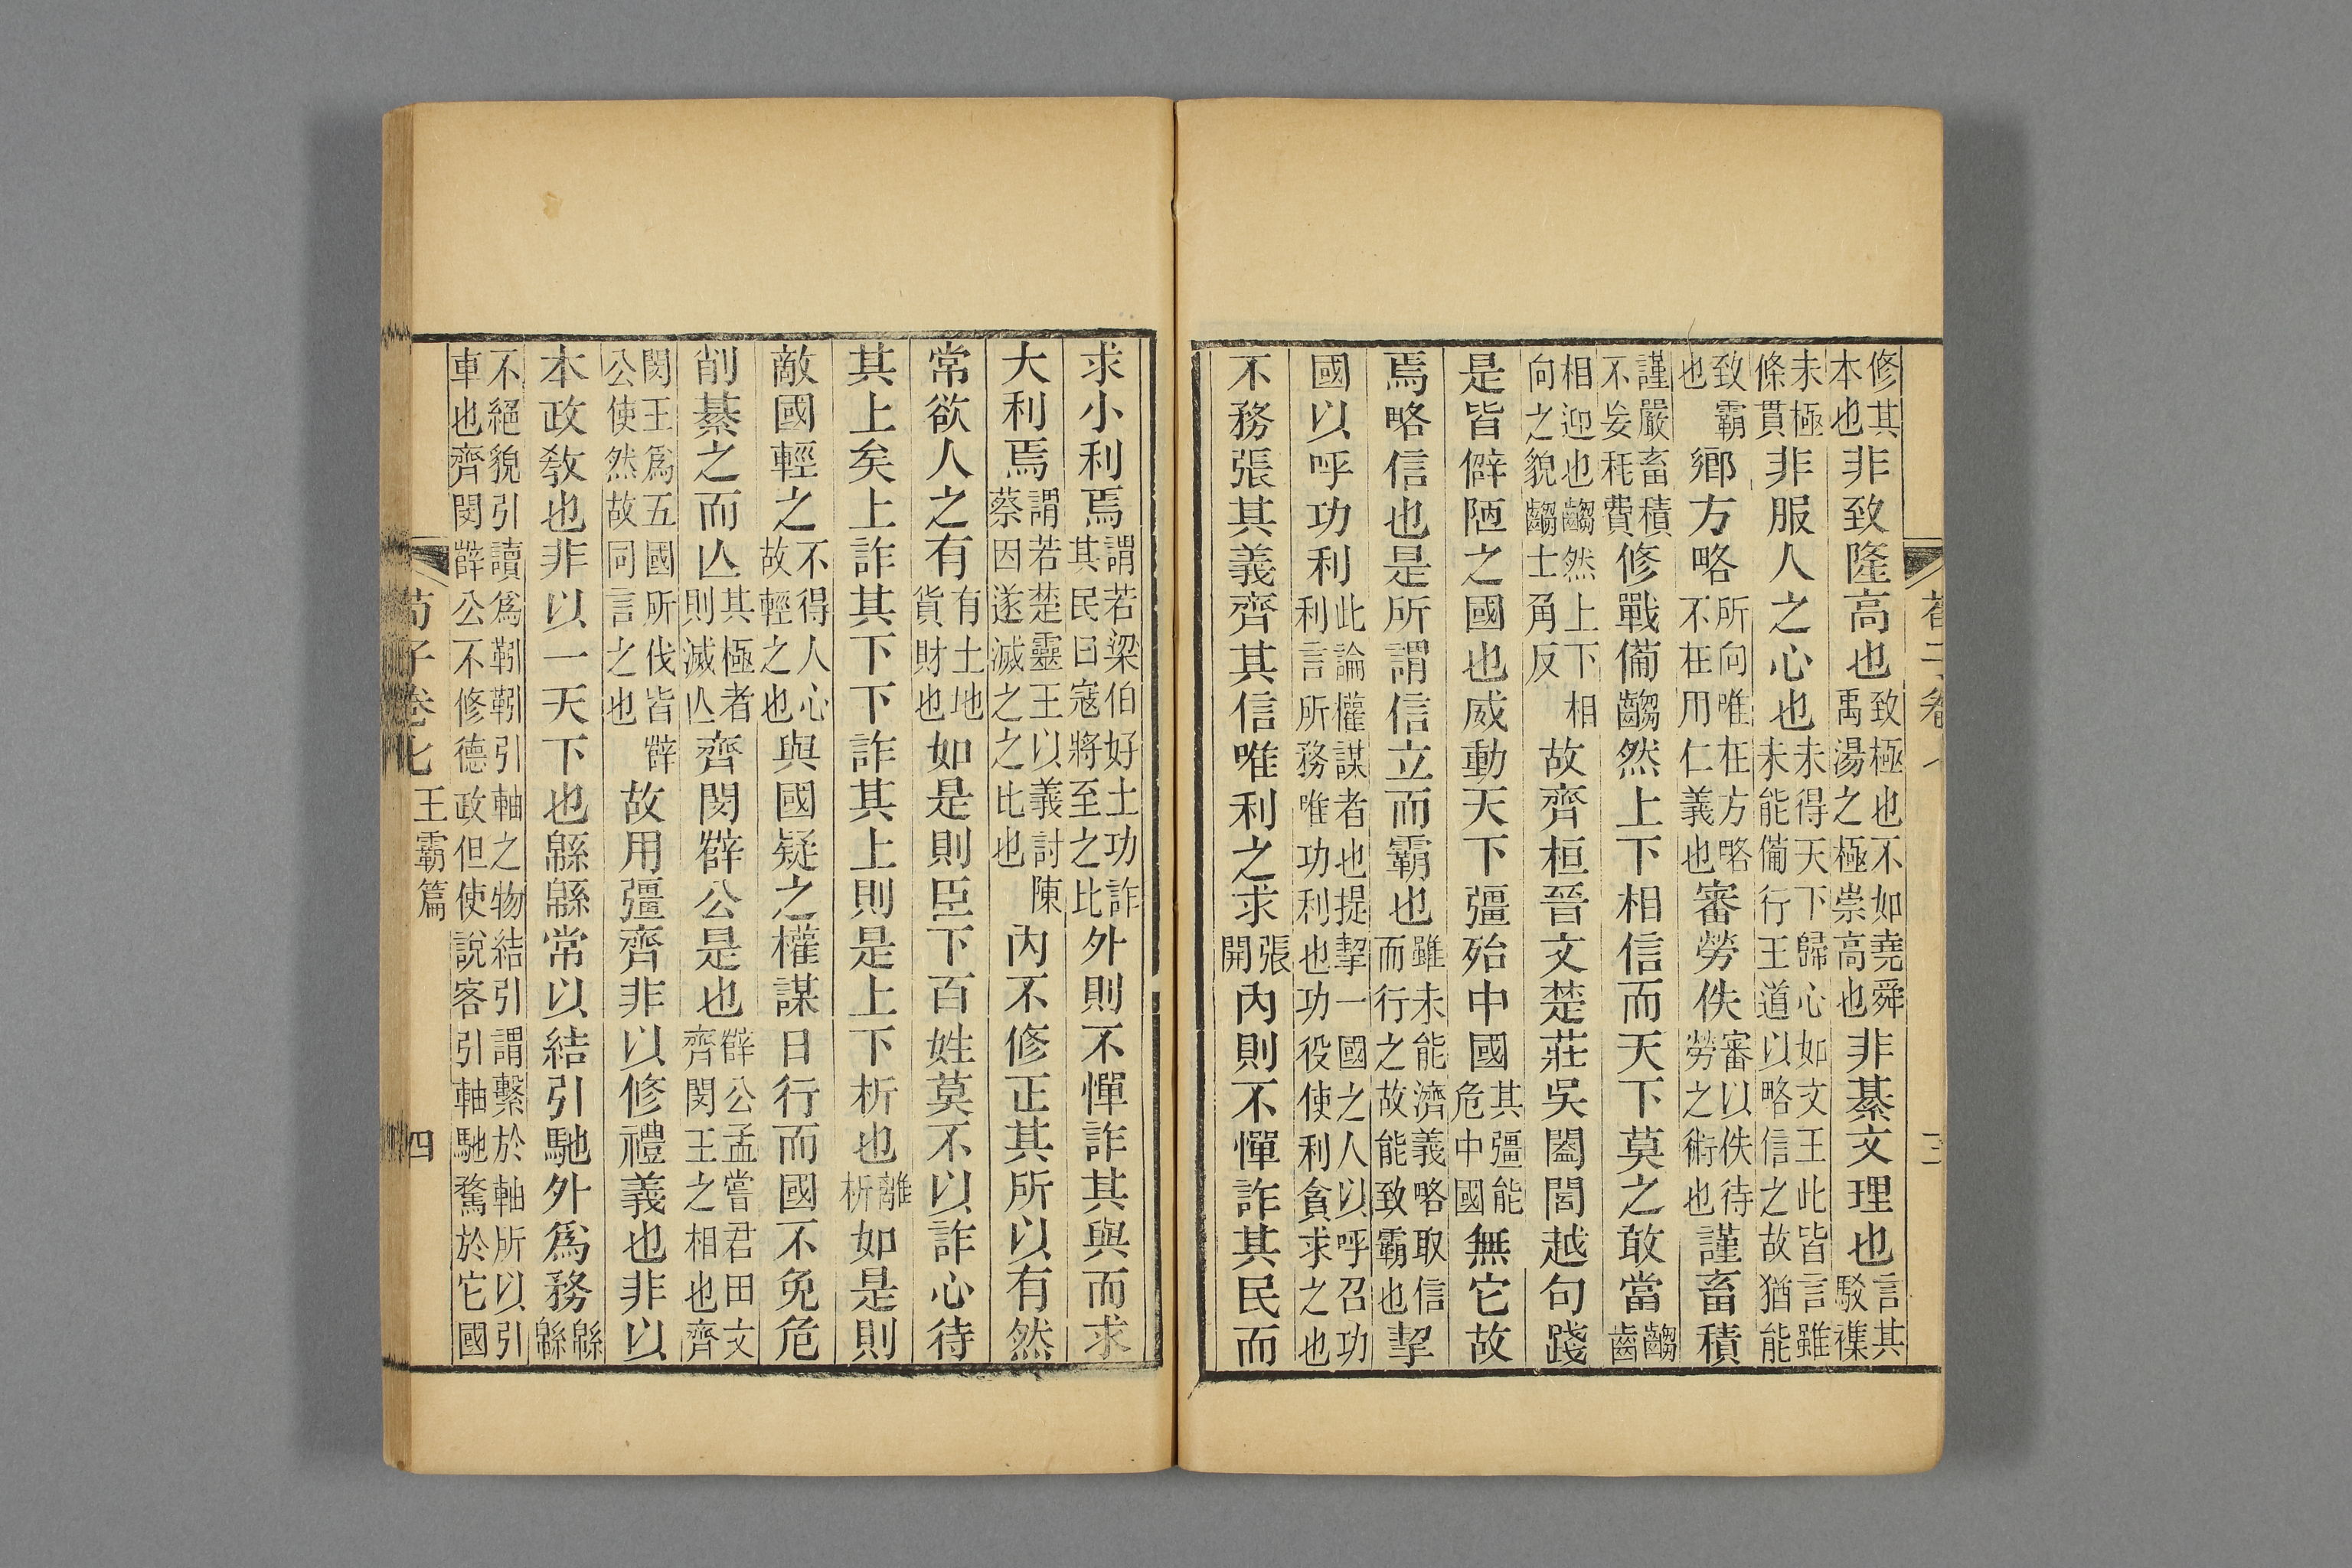 修其本也非致隆高也致極也不如堯舜禹湯之極崇高也非綦文理也言其駁襍
未極條貫非服人之心也未得天下歸心如文王此皆言雖未能備行王道以略信之故猶能
致霸也鄉方略所向唯在方略不在用仁義也審勞佚審以佚待勞之術也謹畜積
謹嚴畜積不妄秏費修戰備齺然上下相信而天下莫之敢當齺齒
相迎也齺然上下相向之貌齺士角反故齊桓晉文楚莊吳闔閭越句踐
是皆僻陋之國也威動天下彊殆中國其彊能危中國無它故
焉略信也是所謂信立而霸也雖未能濟義略取信而行之故能致霸也挈
國以呼功利此論權謀者也提挈一國之人以呼召功利言所務唯功利也功役使利貪求之也
不務張其義齊其信唯利之求張開內則不憚詐其民而
求小利焉謂若梁伯好土功詐其民曰寇將至之比外則不憚詐其與而求
大利焉謂若楚靈王以義討陳蔡因遂滅之之比也內不修正其所以有然
常欲人之有有土地貨財也如是則臣下百姓莫不以詐心待
其上矣上詐其下下詐其上則是上下析也離析如是則
敵國輕之不得人心故輕之也與國疑之權謀日行而國不免危
削綦之而亾其極者則滅亾齊閔薛公是也薛公孟嘗君田文齊閔王之相也齊
閔王爲五國所伐皆薛公使然故同言之也故用彊齊非以修禮義也非以
本政教也非以一天下也緜緜常以結引馳外爲務緜緜
不絕貌引讀爲靷靷引軸之物結引謂繫於軸所以引車也齊閔薛公不修德政但使說客引軸馳騖於它國
荀子卷七 王霸篇 四